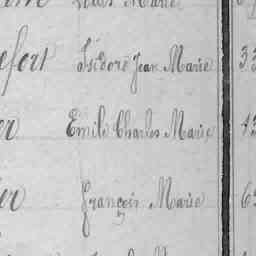 Marie
efort Isidore Jean Marie 3
er Emile Charles Marie 4
er François Marie 6